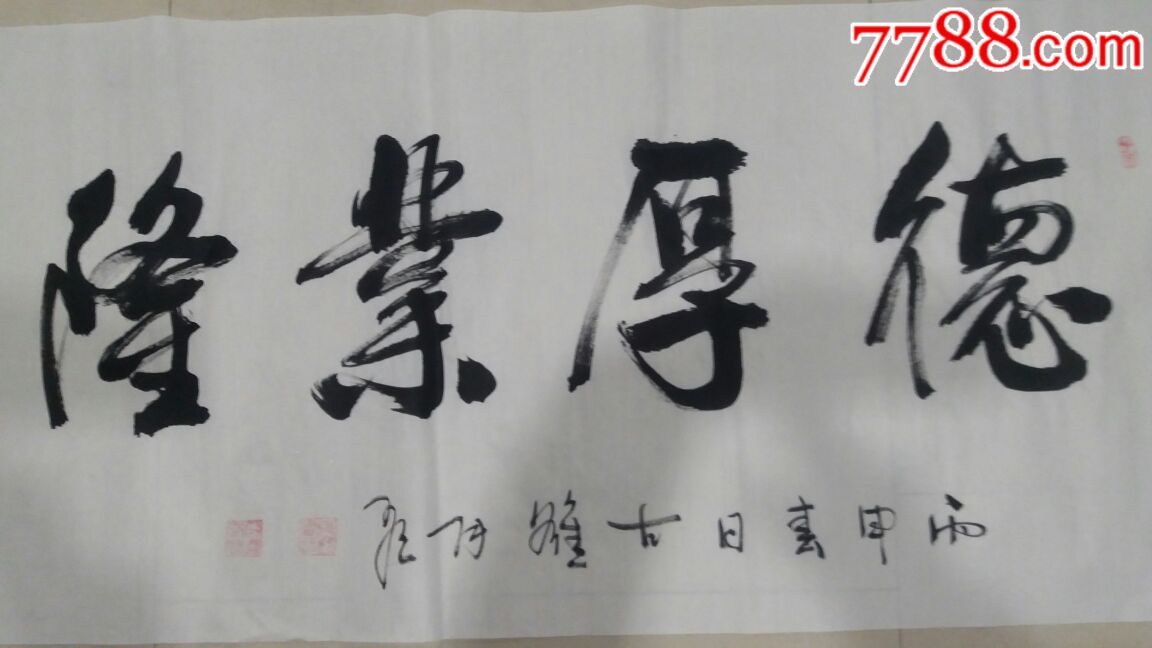 7788.com
德厚業隆
丙申春日古雒